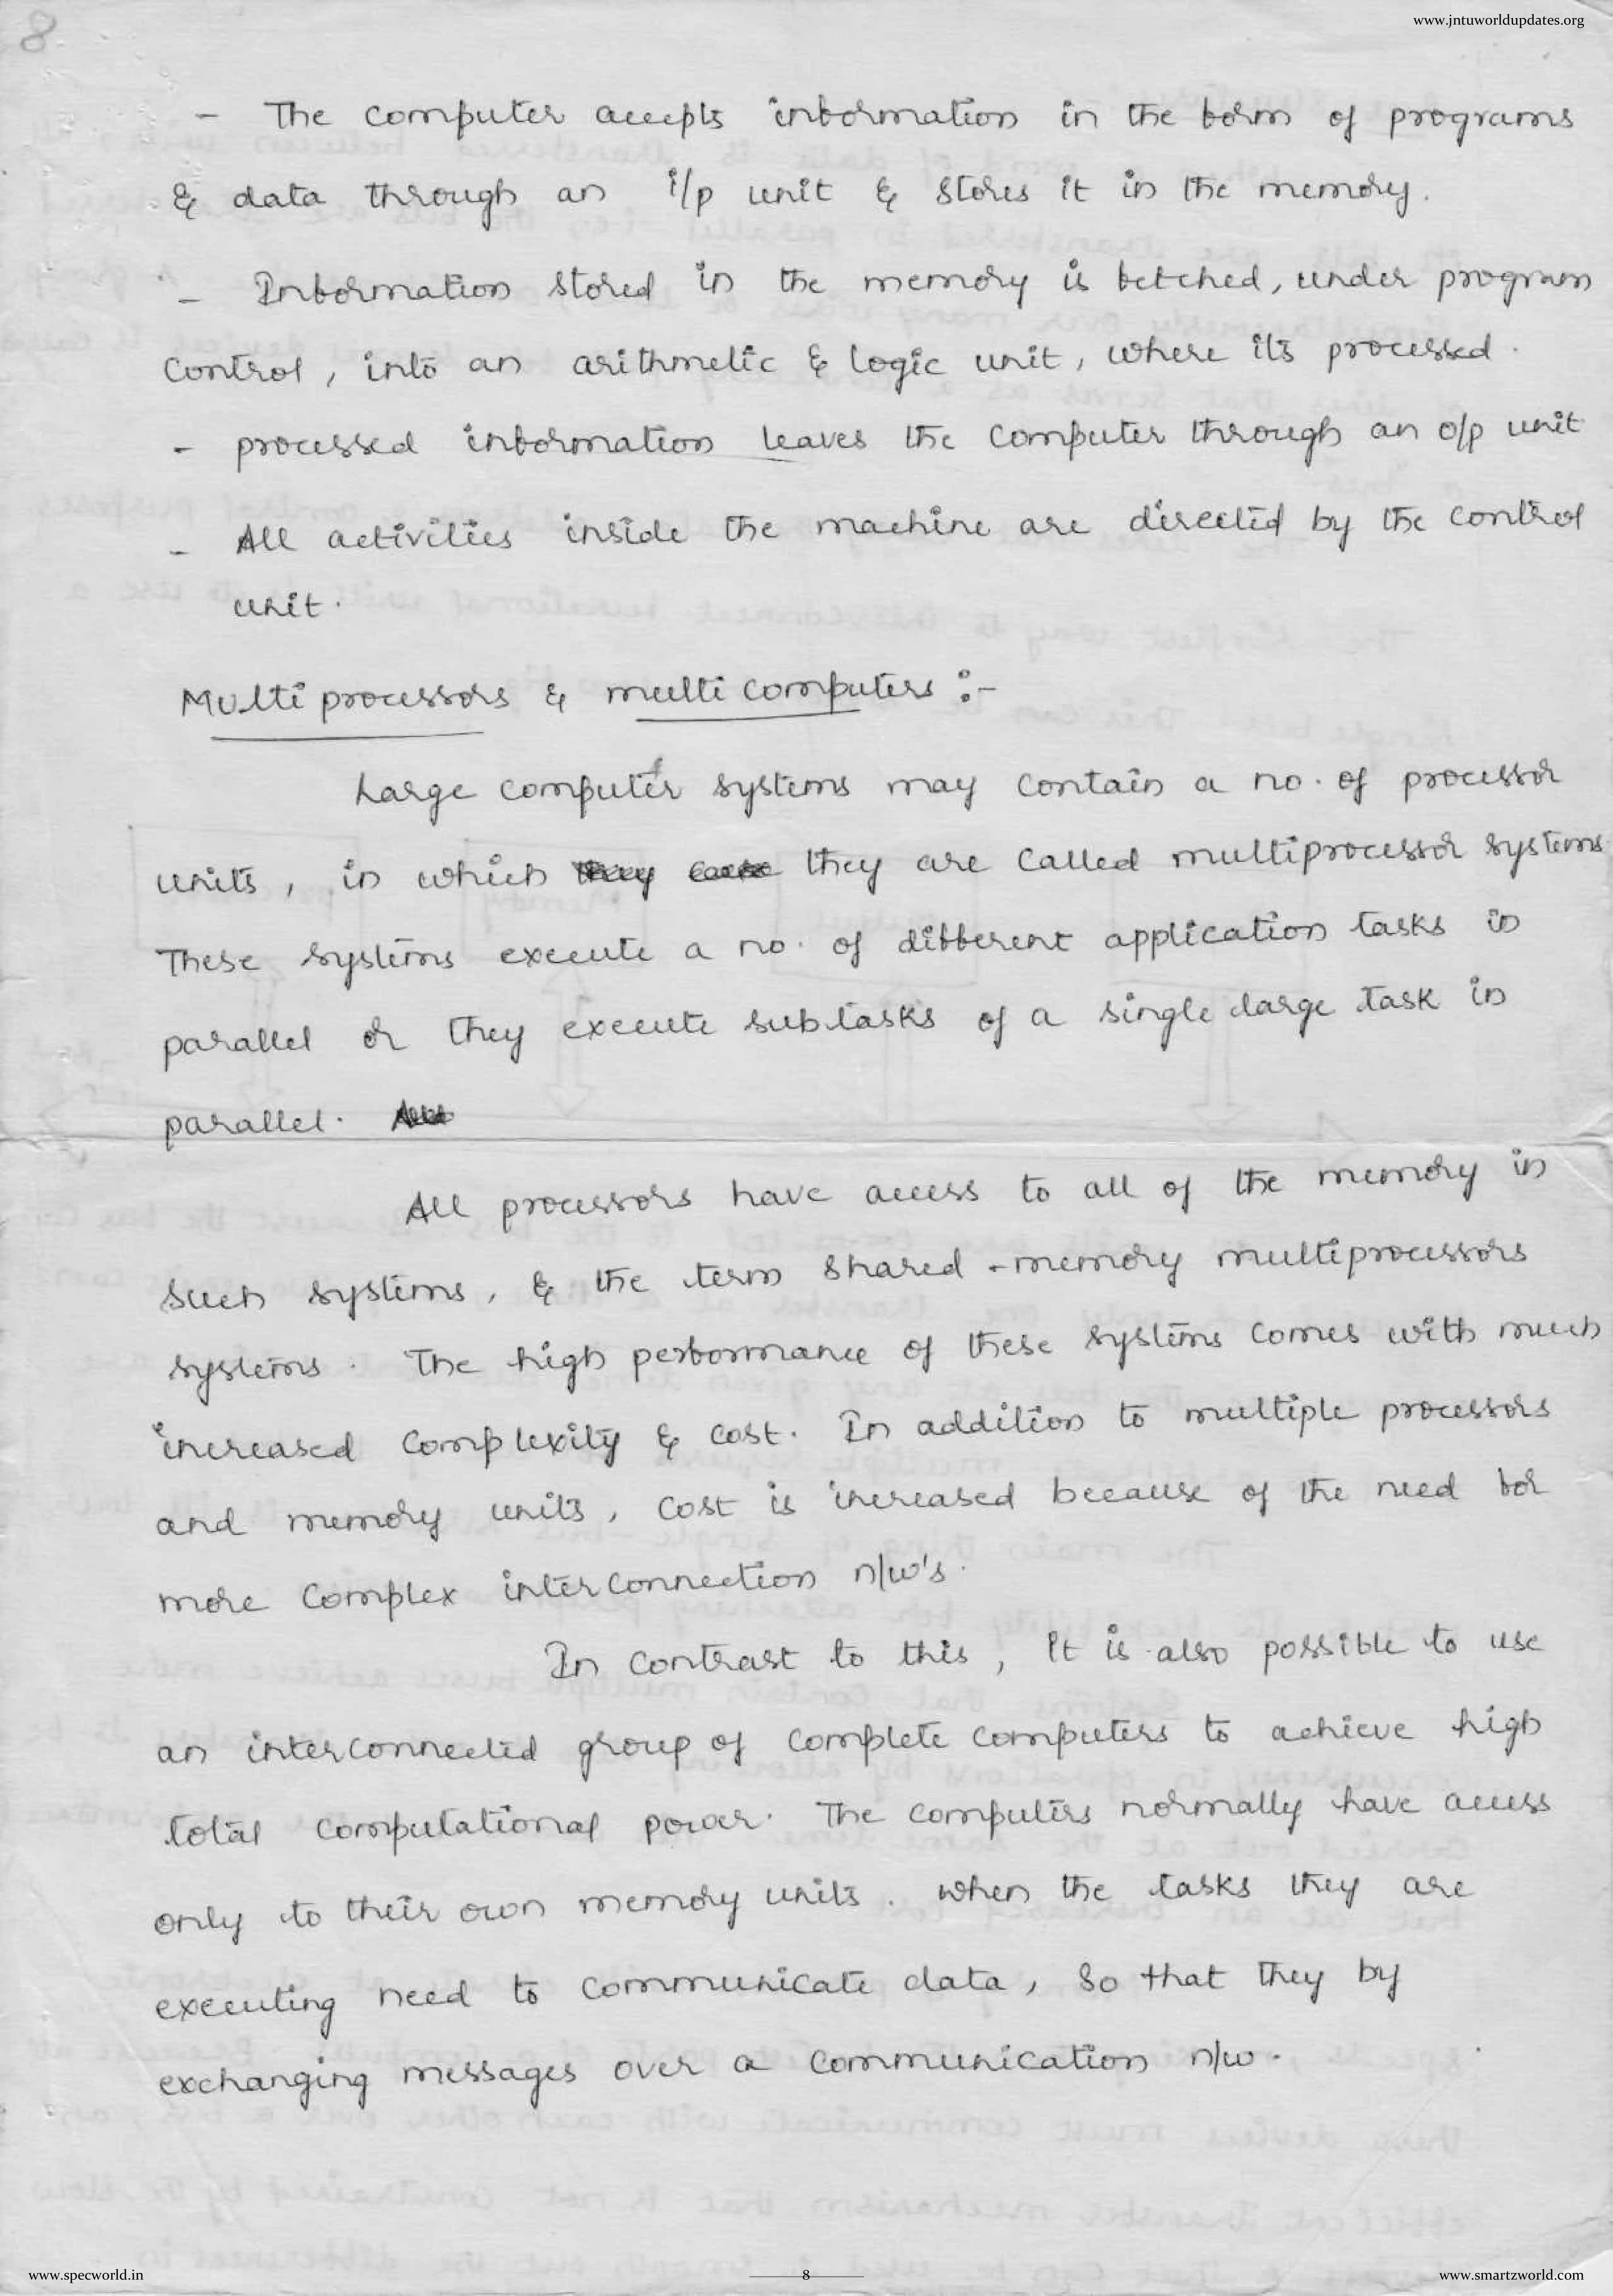 8
www.jntuworldupdates.org
- The computer accepts information in the form of programs
& data through an i/p unit & stores it in the memory.
- Information stored in the memory is fetched, under program
control, into an arithmetic & logic unit, where its processed.
- processed information leaves the computer through an o/p unit
- All activities inside the machine are directed by the control
unit.
Multi processors & multi computers :-
Large computer systems may contain a no. of processor
units, in which they are called multiprocessor systems
These systems execute a no. of different application tasks in
parallel or they execute subtasks of a single large task in
parallel.
All processors have access to all of the memory in
such systems, & the term shared - memory multiprocessors
systems. The high performance of these systems comes with much
increased complexity & cost. In addition to multiple processors
and memory units, cost is increased because of the need for
more complex interconnection n/w's.
In contrast to this, It is also possible to use
an interconnected group of complete computers to achieve high
total computational power. The computers normally have access
only to their own memory units. when the tasks they are
executing need to communicate data, so that they by
exchanging messages over a communication n/w.
www.specworld.in
8
www.smartzworld.com